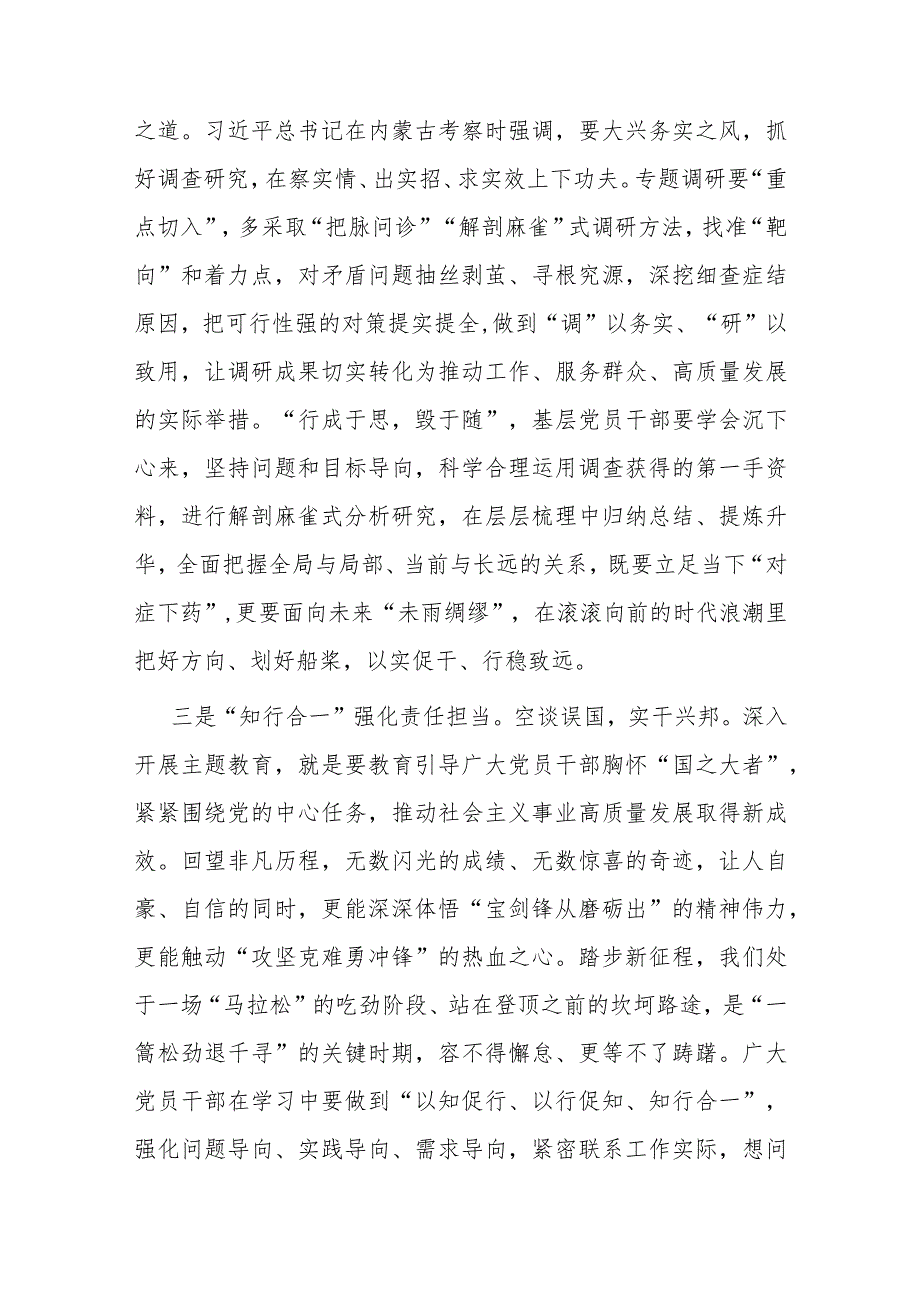 之道。习近平总书记在内蒙古考察时强调，要大兴务实之风，抓
好调查研究，在察实情、出实招、求实效上下功夫。专题调研要“重
点切入”，多采取“把脉问诊”“解剖麻雀”式调研方法，找准“靶
向”和着力点，对矛盾问题抽丝剥茧、寻根究源，深挖细查症结
原因，把可行性强的对策提实提全,做到“调”以务实、“研”以
致用，让调研成果切实转化为推动工作、服务群众、高质量发展
的实际举措。“行成于思，毁于随”，基层党员干部要学会沉下
心来，坚持问题和目标导向，科学合理运用调查获得的第一手资
料，进行解剖麻雀式分析研究，在层层梳理中归纳总结、提炼升
华，全面把握全局与局部、当前与长远的关系，既要立足当下“对
症下药”,更要面向未来“未雨绸缪”，在滚滚向前的时代浪潮里
把好方向、划好船桨，以实促干、行稳致远。
三是“知行合一”强化责任担当。空谈误国，实干兴邦。深入
开展主题教育，就是要教育引导广大党员干部胸怀“国之大者”，
紧紧围绕党的中心任务，推动社会主义事业高质量发展取得新成
效。回望非凡历程，无数闪光的成绩、无数惊喜的奇迹，让人自
豪、自信的同时，更能深深体悟“宝剑锋从磨砺出”的精神伟力，
更能触动“攻坚克难勇冲锋”的热血之心。踏步新征程，我们处
于一场“马拉松”的吃劲阶段、站在登顶之前的坎坷路途，是“一
篙松劲退千寻”的关键时期，容不得懈怠、更等不了踌躇。广大
党员干部在学习中要做到“以知促行、以行促知、知行合一”，
强化问题导向、实践导向、需求导向，紧密联系工作实际，想问